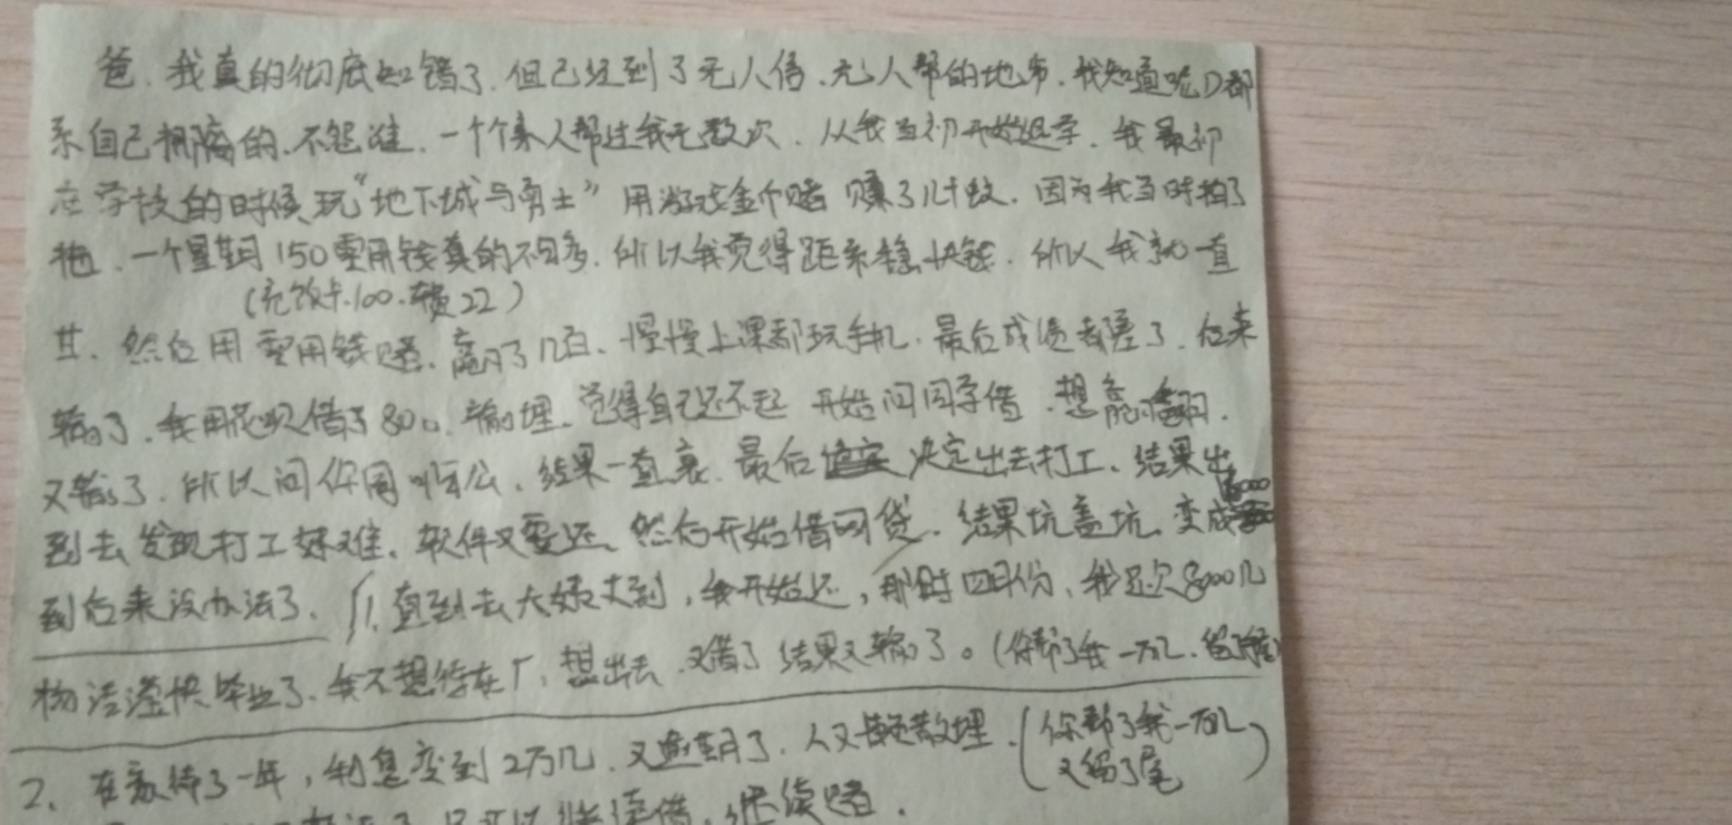 爸.我真的彻底知错了.但已经到了无人信.无人帮的地步.我知道呢D都
系自己搞的.不怨谁.一个家人帮过我无数次.从我当初开始退学.我最初
在学校的时候玩“地下城与勇士”用游戏金币赌 赚了几十蚊.因为我当时拍了
拖.一个星期150零用钱真的不多.所以我觉得距系稳快钱.所以我就一直
(充饭卡.100.车费22)
甘.然后用零用钱赌.赢了几百.慢慢上课都玩手机.最后成绩变差了.后来
输了.我用花呗借了800.输埋.觉得自己还不起 开始问同学借.想翻.
又输了.所以问你同公.结果一直衰.最后决定出去打工.结果出
到去发现打工好难.软件又要还.然后开始借网贷.结果坑盖坑.变成
到后来没办法了.直到去大到,我开始还,那时四月份,我还欠8000几
快毕业了.我不想待在厂.想出去.又借了 结果又输了。(你帮了我一万几.留了尾)
2.在家待了一年,利息变到2万几.又逾期了.人又散埋.(你帮了我一万几
又留了尾)
了.只可以继续借,继续赌.